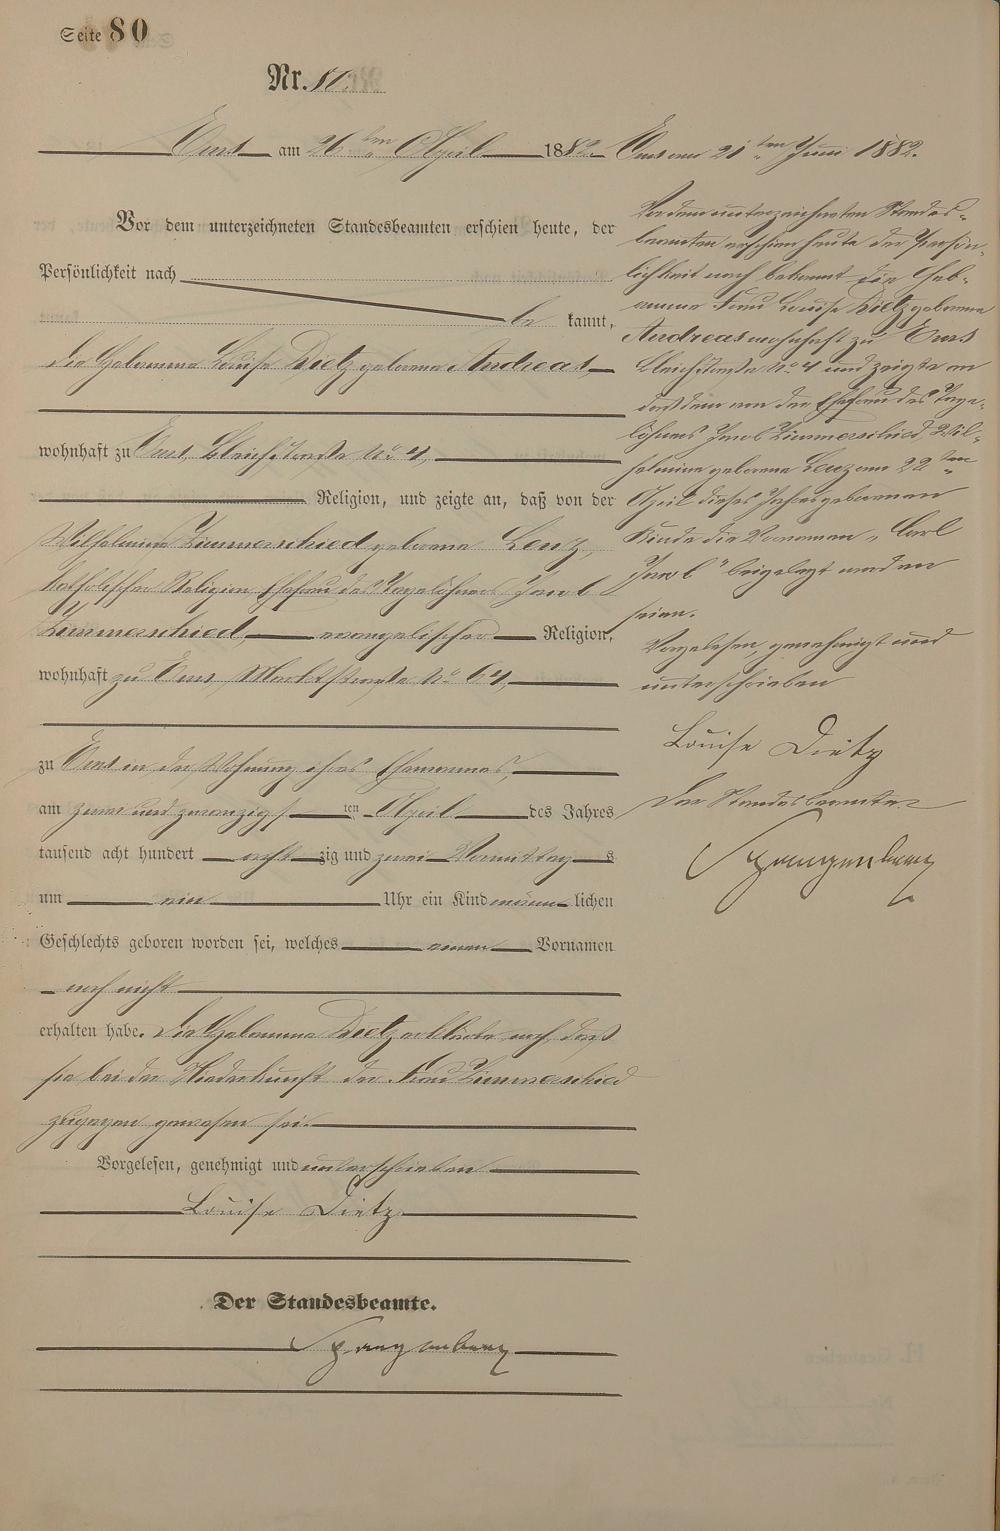 Seite 80
Nr. 80.
Ems am 26ten April 1882.
Vor dem unterzeichneten Standesbeamten erschien heute, der
Persönlichkeit nach
be kannt,
die Hebamme Louise Dietz geborene Andreas,
wohnhaft zu Ems, Bleichstraße No 4,
Religion, und zeigte an, daß von der
Wilhelmine Zimmerschied geborene Lenz,
katholischer Religion Ehefrau des Tagelöhners Jacob
Zimmerschied, evangelischer Religion,
wohnhaft zu Ems, Marktstraße No 64,
zu Ems in der Wohnung ihres Ehemannes,
am zwei und zwanzigsten April des Jahres
tausend acht hundert achtzig und zwei Vormittags
um ein Uhr ein Kind männlichen
Geschlechts geboren worden sei, welches einen Vornamen
noch nicht
erhalten habe. Die Hebamme Dietz erklärte noch, daß
sie bei der Niederkunft der Frau Zimmerschied
zugegen gewesen sei.
Vorgelesen, genehmigt und unterschrieben
Louise Dietz
Der Standesbeamte.
Spangenberg
Ems am 21ten Juni 1882.
Vor dem unterzeichneten Standes-
beamten erschien heute der Persön-
lichkeit nach bekannt die Heb-
amme Frau Louise Dietz geborene
Andreas wohnhaft zu Ems
Bleichstraße No 4 und zeigte an
daß dem von der Ehefrau des Tage-
löhners Jacob Zimmerschied Wil-
helmine geborene Lenz am 22ten
April dieses Jahres geborenen
Kinde die Vornamen „Carl
Jacob" beigelegt worden
seien.
Vorgelesen, genehmigt und
unterschrieben
Louise Dietz
Der Standesbeamte
Spangenberg